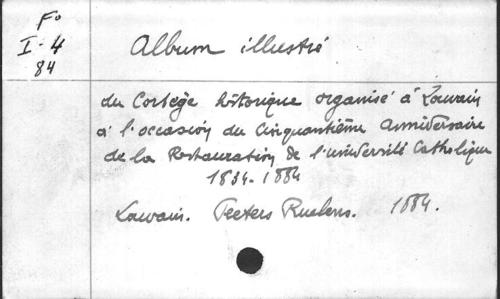 Fo
I-4
84
Album illustré
du Cortège historique organisé à Louvain
à l'occasion du Cinquantième anniversaire
de la Restauration de l'université Catholique
1834-1884
Louvain. Peeters Ruelens. 1884.